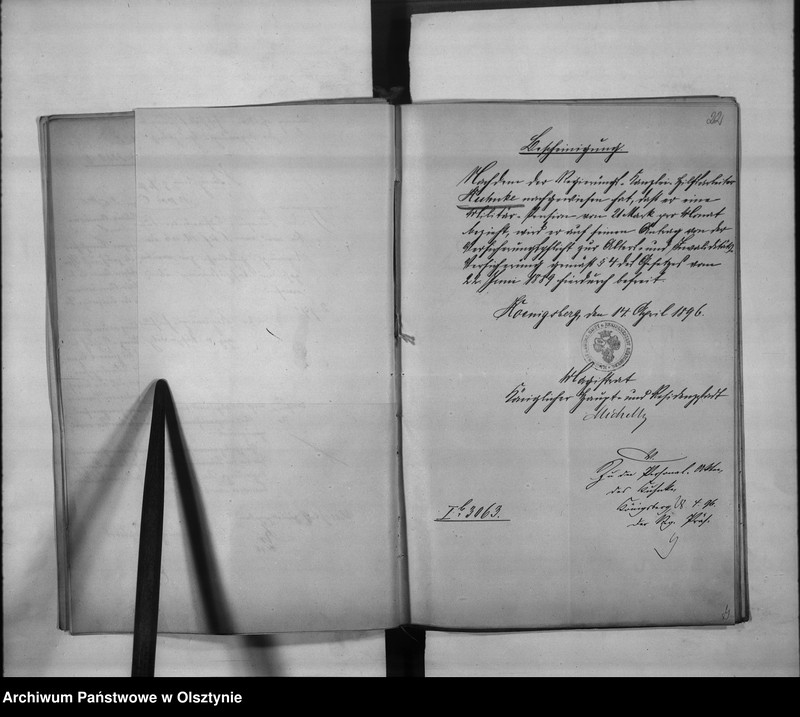 22
Bescheinigung.
Nachdem der Regierungs-Kanzlei-Hilfsarbeiter
Kuhnke nachgewiesen hat, daß er eine
Militär-Pension von 21 Mark pro Monat
bezieht, wird er auf seinen Antrag von der
Versicherungspflicht zur Alters- und Invaliditäts-
Versicherung gemäß § 4 des Gesetzes vom
22 Juni 1889 hierdurch befreit.
Koenigsberg, den 14. April 1896.
Magistrat
Königlicher Haupt- und Residenzstadt
Zu den Personal-Akten
des Kuhnke
Königsberg 4 96.
Der Rg. Präs.
3063.
Archiwum Państwowe w Olsztynie